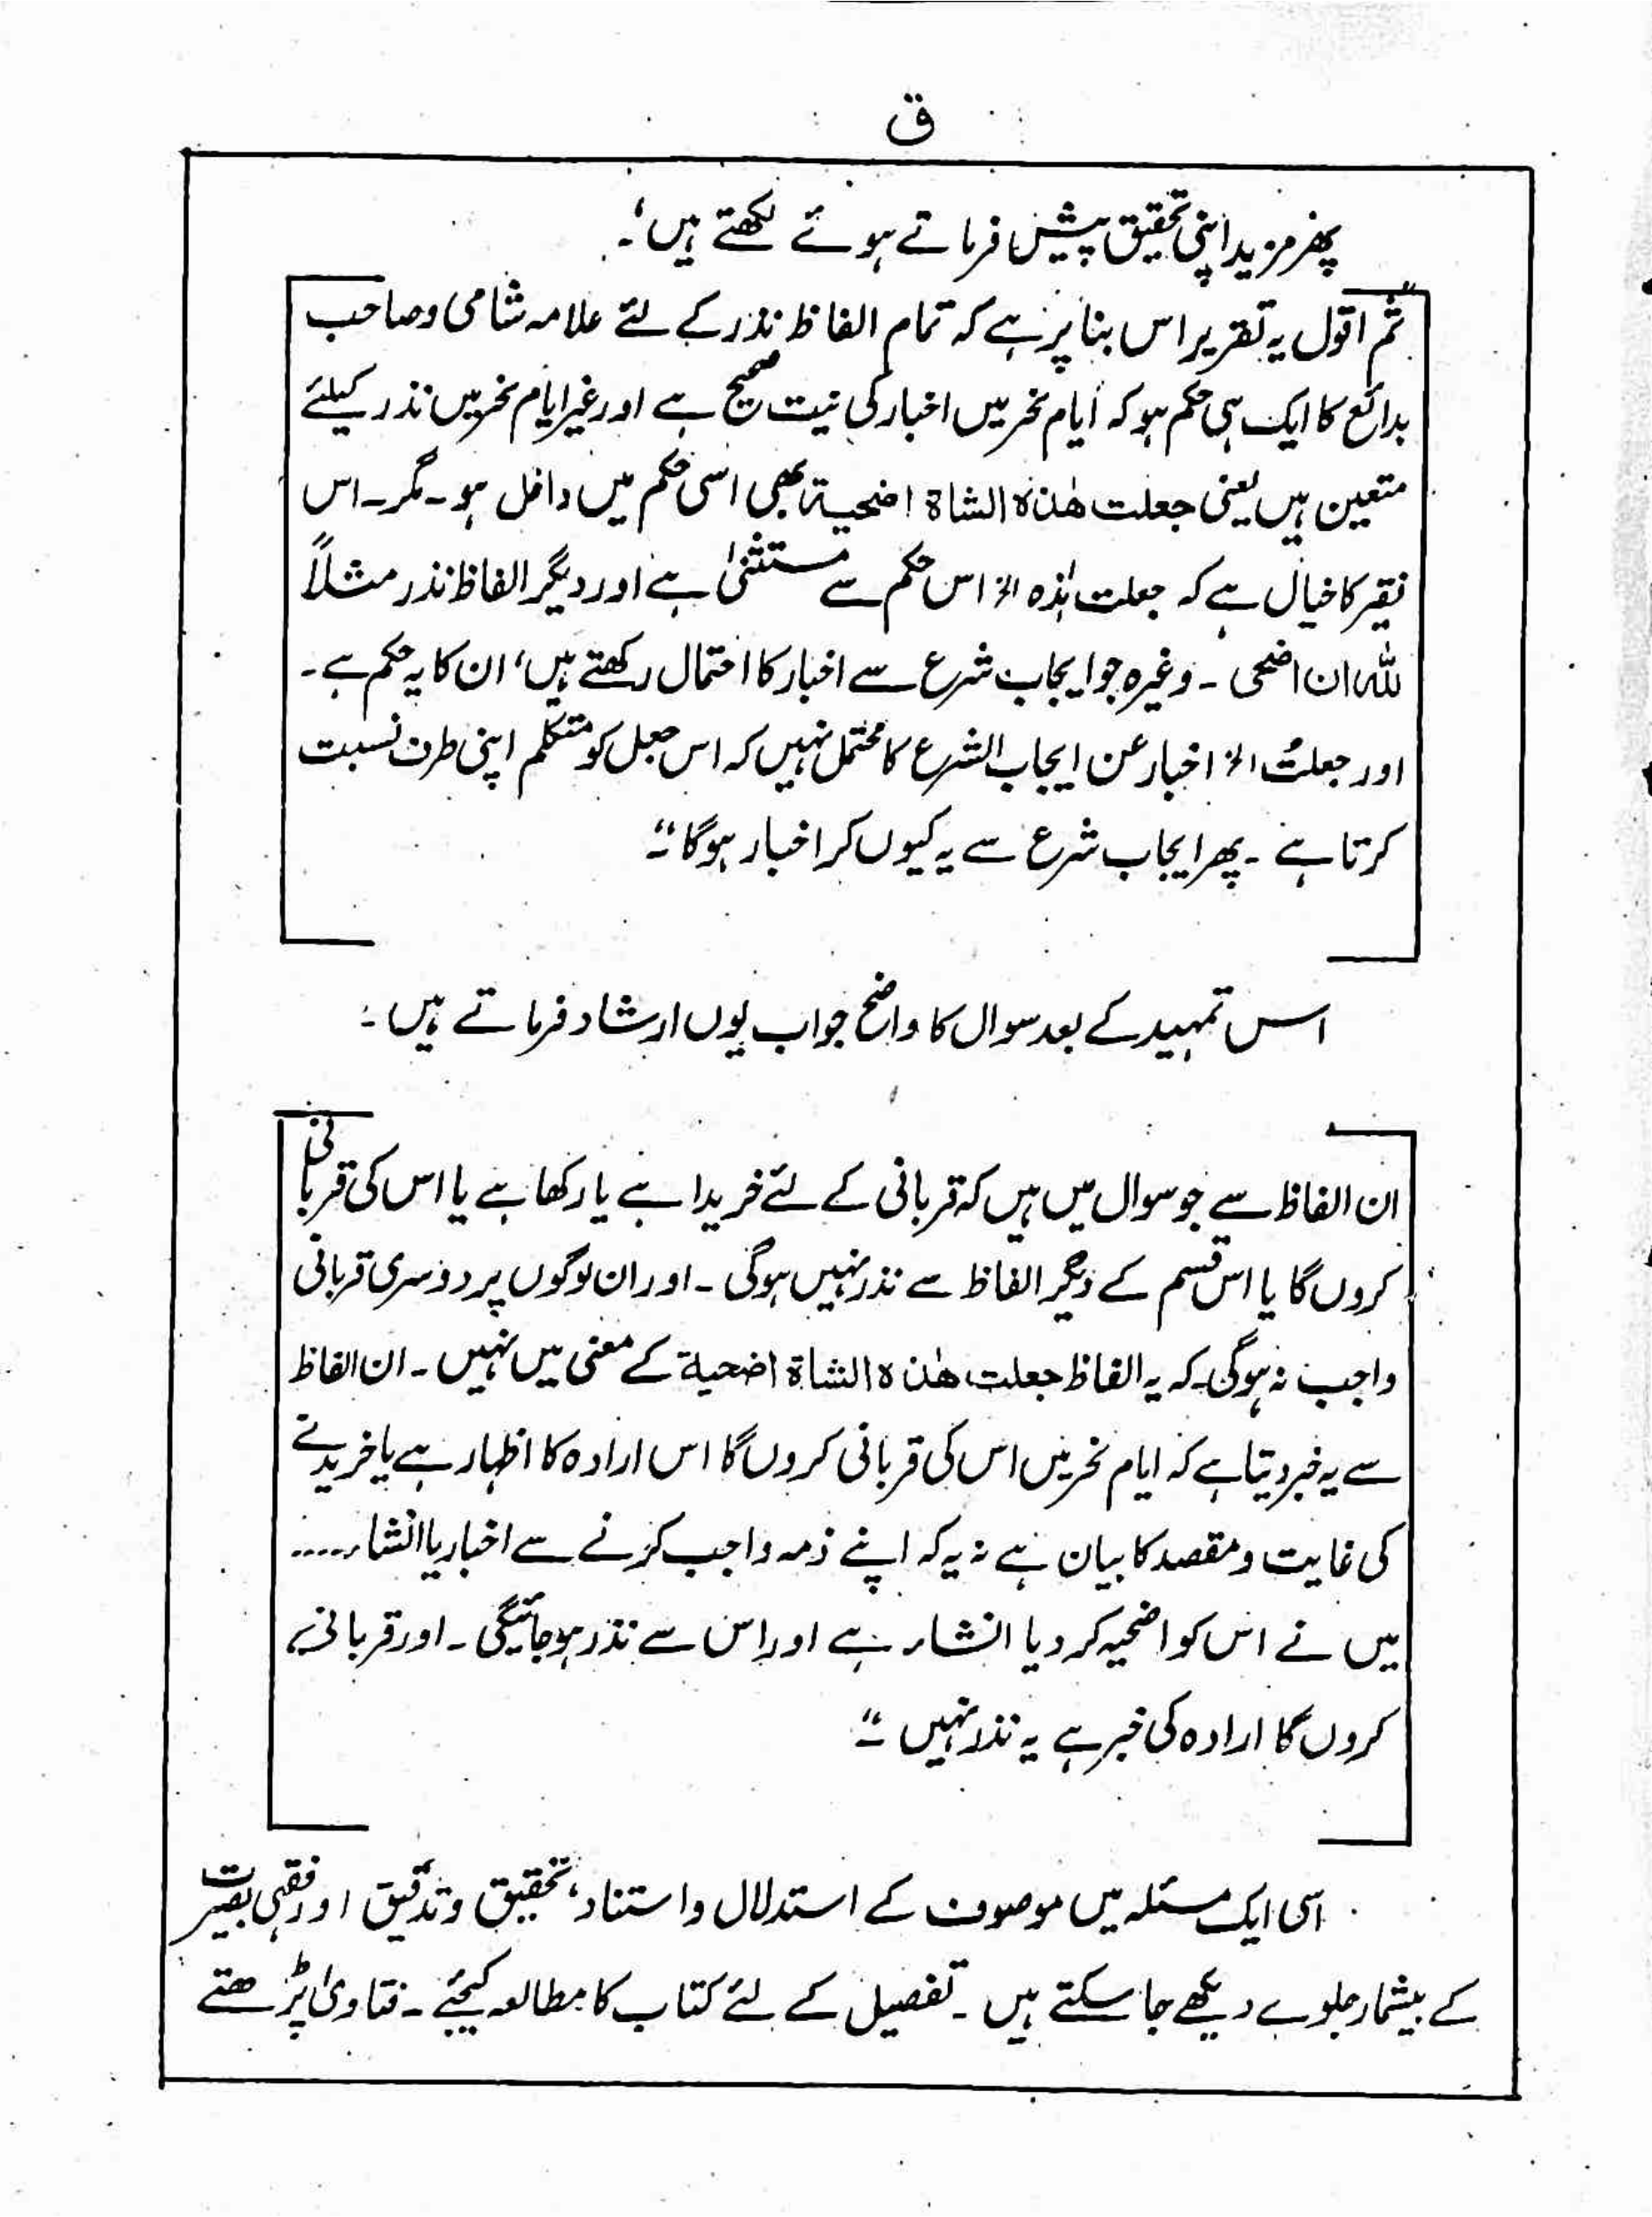 ق
پھر مزید اپنی تحقیق پیش فرماتے ہوئے لکھتے ہیں،۔
”ثم اقول یہ تقریر اس بنا پر ہے کہ تمام الفاظ نذر کے لئے علامہ شامی وصاحب
بدائع کا ایک ہی حکم ہو کہ ایام نحر میں اخبار کی نیت صحیح ہے اور غیر ایام نحر میں نذر کیلئے
متعین ہیں یعنی جعلت ھٰذہ الشاۃ اضحیۃ بھی اسی حکم میں داخل ہو۔ مگر۔ اس
فقیر کا خیال ہے کہ جعلت ہٰذہ الخ اس حکم سے مستثنیٰ ہے اور دیگر الفاظ نذر مثلاً
للہ ان اضحی۔ وغیرہ جو ایجاب شرع سے اخبار کا احتمال رکھتے ہیں، ان کا یہ حکم ہے۔
اور جعلتُ الخ اخبار عن ایجاب الشرع کا محتمل نہیں کہ اس جعل کو متکلم اپنی طرف نسبت
کرتا ہے۔ پھر ایجاب شرع سے یہ کیوں کر اخبار ہوگا“۔
اس تمہید کے بعد سوال کا واضح جواب یوں ارشاد فرماتے ہیں :
ان الفاظ سے جو سوال میں ہیں کہ قربانی کے لئے خریدا ہے یا رکھا ہے یا اس کی قربانی
کروں گا یا اس قسم کے دیگر الفاظ سے نذر نہیں ہوگی۔ اور ان لوگوں پر دوسری قربانی
واجب نہ ہوگی کہ یہ الفاظ جعلت ھٰذہ الشاۃ اضحیۃ کے معنی میں نہیں۔ ان الفاظ
سے یہ خبر دیتا ہے کہ ایام نحر میں اس کی قربانی کروں گا اس ارادہ کا اظہار ہے یا خریدنے
کی غایت ومقصد کا بیان ہے نہ یہ کہ اپنے ذمہ واجب کرنے سے اخبار یا انشاء ....
میں نے اس کو اضحیہ کر دیا انشاء ہے اور اس سے نذر ہوجائیگی۔ اور قربانی
کروں گا ارادہ کی خبر ہے یہ نذر نہیں“۔
اسی ایک مسئلہ میں موصوف کے استدلال واستناد، تحقیق وتدقیق اور فقہی بصیرت
کے بیشمار جلوے دیکھے جا سکتے ہیں۔ تفصیل کے لئے کتاب کا مطالعہ کیجئے۔ فتاویٰ پڑھتے